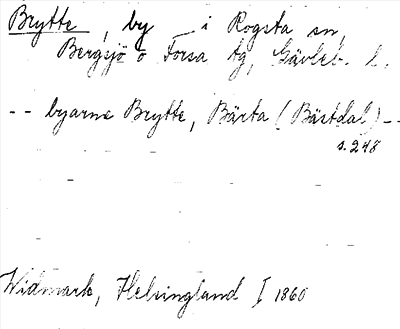 Brytte, by i Rogsta sn,
Bergsjö o Forsa tg, Gävleb. l.
-- byarne Brytte, Bärta (Bästdal) --
s. 248
Widmark, Helsingland I 1860